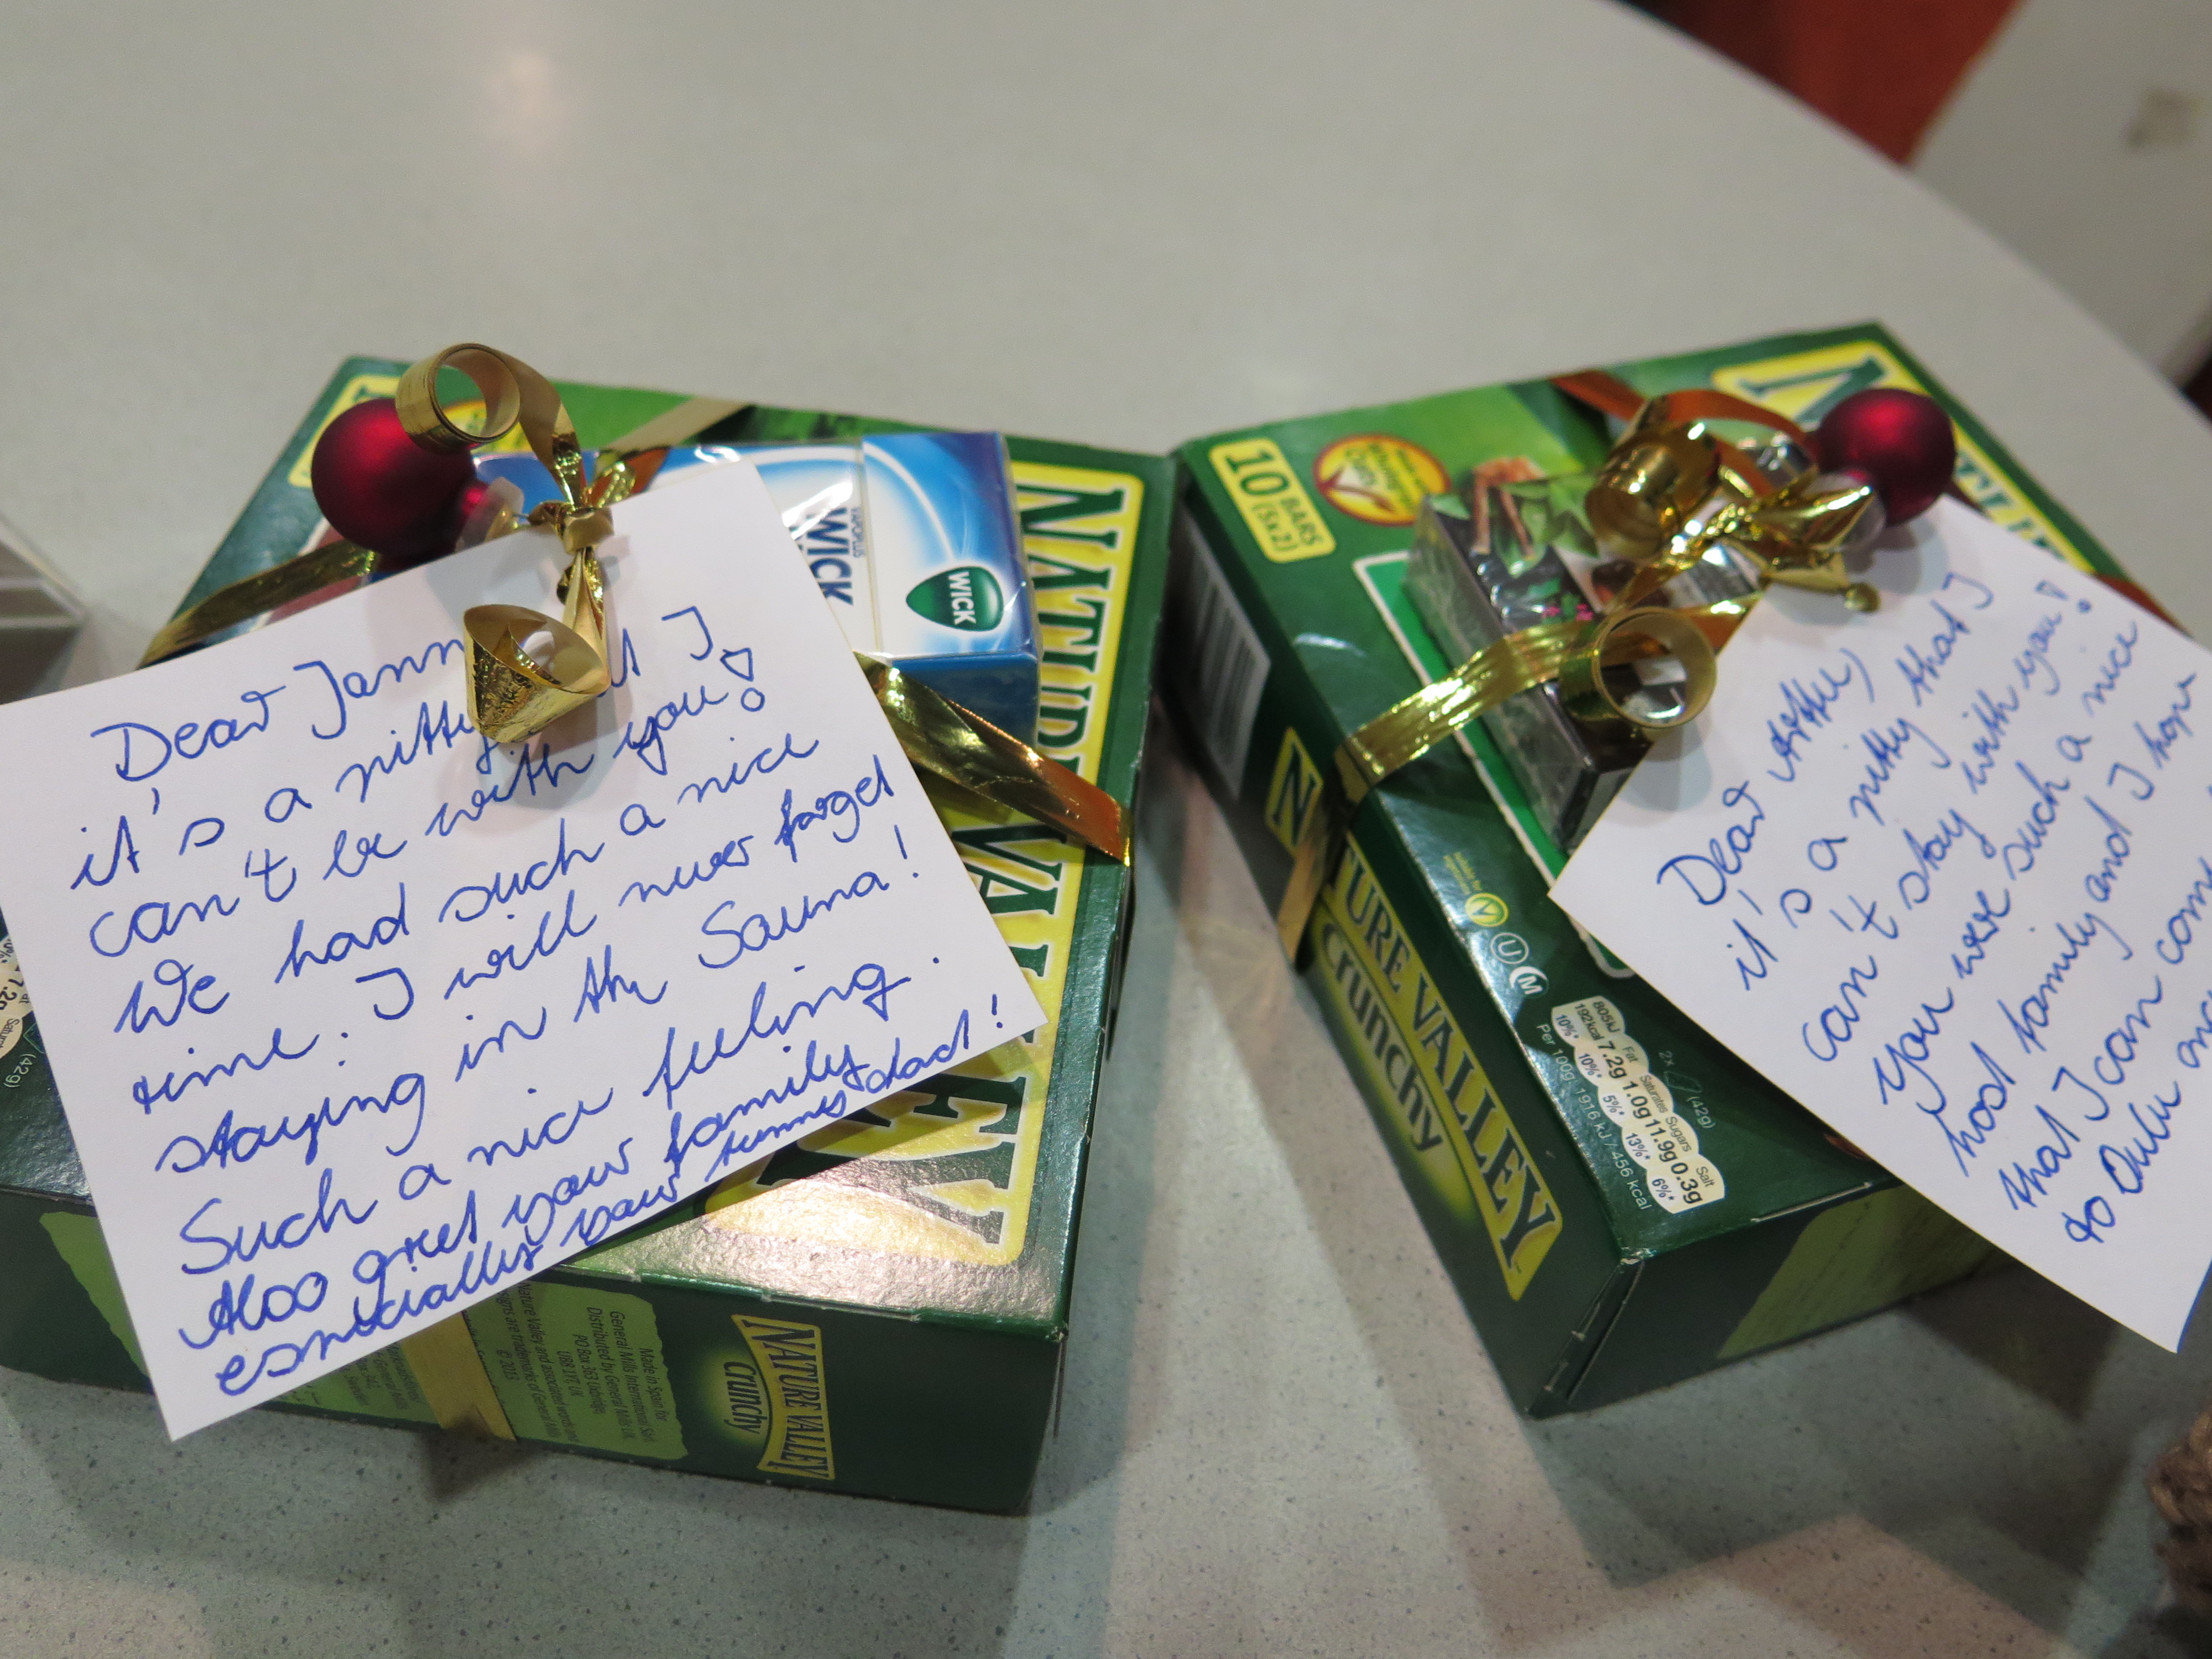 Dear Jann
it's a pitty I
can't be with you!
We had such a nice
time. I will never forget
staying in the Sauna!
Such a nice feeling.
Also greet your family
especially your funny dad!
WICK
WICK
NATURE VALLEY
Made in Spain for
General Mills International Sàrl
Distributed by General Mills UK
PO Box 363 Uxbridge,
UB8 1YT UK
Nature Valley and associated words and
designs are trademarks of General Mills
© 2013
NATURE VALLEY
crunchy
(42g)
10 BARS
(5x2)
NATURE VALLEY
crunchy
U
M
2x (42g)
805kJ
192kcal
10%*
Fat
7.2g
10%*
Saturates
1.0g
5%*
Sugars
11.9g
13%*
Salt
0.3g
6%*
Per 100g: 1916 kJ / 456 kcal
Dear
it's a pitty that I
can't stay with you!
You were such a nice
host family and I hope
that I can come
to Oulu